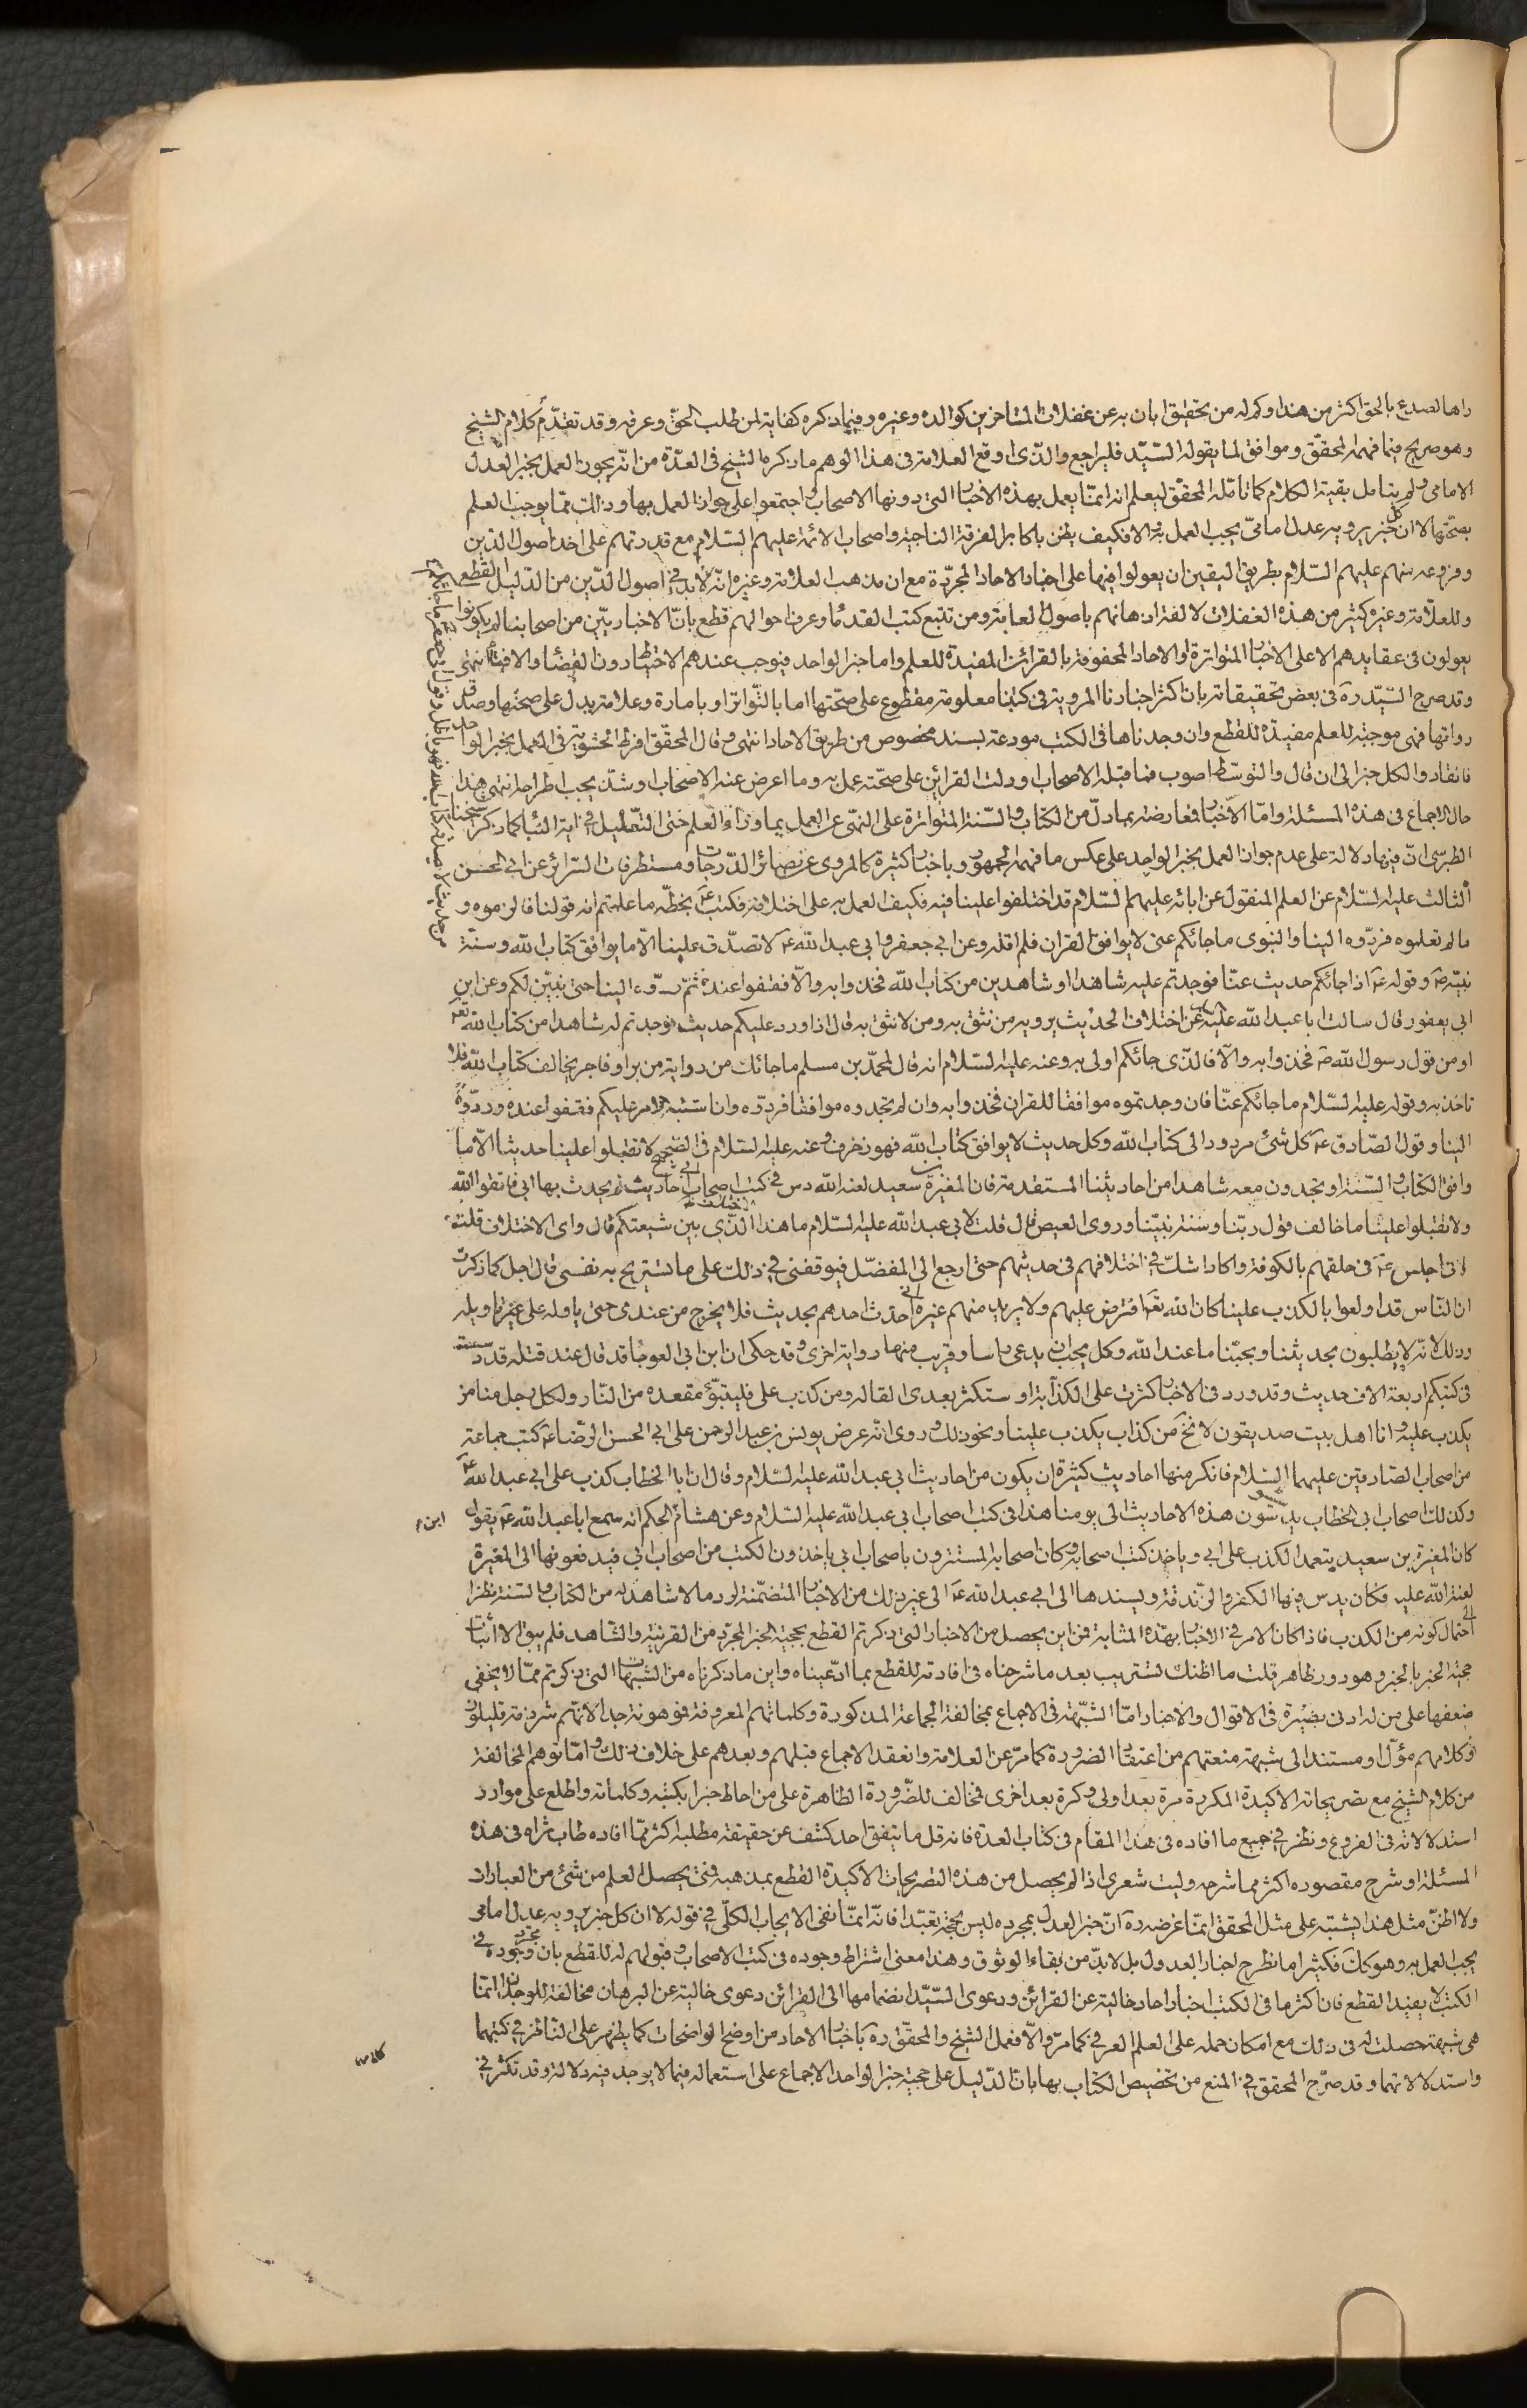 راها لصدع بالحق اكثر من هذا وكم له من تحقيق ابان به عن غفلات المتاخرين كوالده وغيره وفيما ذكره كفاية لمن طلب الحق وعرفه وقد تقدم كلام الشيخ
وهو صريح فيما فهمه المحقق وموافق لما يقوله السيد فليراجع والذى اوقع العلامة فى هذا الوهم ما ذكره الشيخ فى العدة من انه يجوز العمل بخبر العدل
الامامى ولم يتامل بقية الكلام كما تامله المحقق ليعلم انه انما يعمل بهذه الاخبار التى دونها الاصحاب واجتمعوا على جواز العمل بها وذلك مما يوجب العلم
بصحتها لا ان كل خبر يرويه عدل امامى يجب العمل به والا فكيف يظن باكابر الفرقة الناجية واصحاب الائمة عليهم السلام مع قدرتهم على اخذ اصول الدين
وفروعه منهم عليهم السلام بطريق اليقين ان يعولوا فيها على اخبار الاحاد المجردة مع ان مذهب العلامة وغيره انه لابد فى اصول الدين من الدليل القطعى
وللعلامة وغيره كثير من هذه الغفلات لالفة اذهانهم باصول العامة ومن تتبع كتب القدماء وعرف احوالهم قطع بان الاخباريين من اصحابنا لم يكونوا
يعولون فى عقايدهم الا على الاخبار المتواترة او الاحاد المحفوفة بالقرائن المفيدة للعلم واما خبر الواحد فيوجب عندهم الاحتياط دون القضاء والافتاء انتهى
وقد صرح السيد ره فى بعض تحقيقاته بان اكثر اخبارنا المروية فى كتبنا معلومة مقطوع على صحتها اما بالتواتر او بامارة وعلامة يدل على صحتها وصدق
رواتها فهى موجبة للعلم مفيدة للقطع وان وجدناها فى الكتب مودعة بسند مخصوص من طريق الاحاد انتهى وقال المحقق افرط الحشوية فى العمل بخبر الواحد
فانقادوا لكل خبر الى ان قال والتوسط اصوب فما قبله الاصحاب او دلت القرائن على صحته عمل به وما اعرض عنه الاصحاب او شذ يجب اطراحه انتهى هذا
حال الاجماع فى هذه المسئلة واما الاخبار فمعارضة بما دل من الكتاب والسنة المتواترة على النهى عن العمل بما وراء العلم حتى التعليل فى اية النبأ كما ذكر شيخنا
الطبرسى ان فيها دلالة على عدم جواز العمل بخبر الواحد على عكس ما فهمه الجمهور وباخبار كثيرة كالمروى عن بصائر الدرجات ومستطرفات السرائر عن ابى الحسن
الثالث عليه السلام عن العلم المنقول عن ابائه عليهم السلام قد اختلفوا علينا فيه فكيف العمل به على اختلافه فكتب ع بخطه ما علمتم انه قولنا فالزموه و
ما لم تعلموه فردوه الينا والنبوى ما جائكم عنى لا يوافق القران فلم اقله وعن ابى جعفر وابى عبد الله ع لا تصدق علينا الا ما يوافق كتاب الله وسنة
نبيه ص وقوله ع اذا جائكم حديث عنا فوجدتم عليه شاهدا او شاهدين من كتاب الله فخذوا به والا فقفوا عنده ثم ردوه الينا حتى نبين لكم وعن ابن
ابى يعفور قال سالت ابا عبد الله عليه عن اختلاف الحديث يرويه من نثق به ومن لا نثق به قال اذا ورد عليكم حديث فوجدتم له شاهدا من كتاب الله
او من قول رسول الله ص فخذوا به والا فالذى جائكم اولى به وعنه عليه السلام انه قال لمحمد بن مسلم ما جائك من رواية من بر او فاجر يخالف كتاب الله فلا
تاخذ به وقوله عليه السلام ما جائكم عنا فان وجدتموه موافقا للقران فخذوا به وان لم تجدوه موافقا فردوه وان اشتبه الامر عليكم فقفوا عنده وردوه
الينا وقول الصادق ع كل شئ مردود الى كتاب الله وكل حديث لا يوافق كتاب الله فهو زخرف وعنه عليه السلام فى الصحيح لا تقبلوا علينا حديثا الا ما
وافق الكتاب والسنة او تجدون معه شاهدا من احاديثنا المتقدمة فان المغيرة بن سعيد لعنه الله دس فى كتب اصحاب ابى احاديث لم يحدث بها ابى فاتقوا الله
ولا تقبلوا علينا ما خالف قول ربنا وسنة نبينا وروى العيص قال قلت لابى عبد الله عليه السلام ما هذا الذى بين شيعتكم قال واى الاختلاف قلت
انى اجلس فى حلقهم بالكوفة واكاد اشك فى اختلافهم فى حديثهم حتى ارجع الى المفضل فيوقفنى فى ذلك على ما تستريح به نفسى قال اجل كما ذكرت
ان الناس قد اولعوا بالكذب علينا كان الله افترض عليهم ولا يريد منهم غيره انى احدث احدهم بحديث فلا يخرج من عندى حتى ياوله على غير تاويله
وذلك لانه لا يطلبون بحديثنا وبحبنا ما عند الله وكل يحب ان يدعى راسا وقريب منها رواية اخرى وقد حكى ان ابن ابى العوجاء قد قال عند قتله قد دسست
فى كتبكم اربعة الاف حديث وقد ورد فى الاخبار كثرت على الكذابة او ستكثر بعدى القالة ومن كذب على فليتبوء مقعده من النار ولكل رجل منا من
يكذب عليه وانا اهل بيت صديقون لا نخ من كذاب يكذب علينا ونحو ذلك وروى انه عرض يونس بن عبد الرحمن على ابى الحسن الرضا ع كتب جماعة
من اصحاب الصادقين عليهما السلام فانكر منها احاديث كثيرة ان يكون من احاديث ابى عبد الله عليه السلام وقال ان ابا الخطاب كذب على ابى عبد الله ع
وكذلك اصحاب ابى الخطاب يدسون هذه الاحاديث الى يومنا هذا فى كتب اصحاب ابى عبد الله عليه السلام وعن هشام الحكم انه سمع ابا عبد الله ع يقول
ابن
كان المغيرة بن سعيد يتعمد الكذب على ابى وياخذ كتب اصحابه وكان اصحابه المستترون باصحاب ابى ياخذون الكتب من اصحاب ابى فيدفعونها الى المغيرة
لعنة الله عليه فكان يدس فيها الكفر والزندقة ويسندها الى ابى عبد الله ع الى غير ذلك من الاخبار المتضمنة لرد ما لا شاهد له من الكتاب والسنة نظرا
الى احتمال كونه من الكذب فاذا كان الامر فى الاخبار بهذه المثابة فمن اين يحصل من الاخبار التى ذكرتم القطع بحجية الخبر المجرد من القرينة والشاهد فلم يبق الا اثبات
حجية الخبر بالخبر وهو دور ظاهر قلت ما اظنك تستريب بعد ما شرحناه فى افادته للقطع بما ادعيناه واين ما ذكرناه من الشبهات التى ذكرتم مما لا يخفى
ضعفها على من له ادنى بصيرة فى الاقوال والاخبار اما الشبهة فى الاجماع بمخالفة الجماعة المذكورة وكلماتهم المعروفة فموهونة جدا لانهم شرذمة قليلون
وكلامهم مؤل او مستند الى شبهة منعتهم من اعتقاد الضرورة كما مر عن العلامة وانعقد الاجماع قبلهم وبعدهم على خلاف ذلك واما توهم المخالفة
من كلام الشيخ مع تصريحاته الاكيدة المكررة مرة بعد اولى وكرة بعد اخرى فمخالف للضرورة الظاهرة على من احاط خبرا بكتبه وكلماته واطلع على موارد
استدلالاته فى الفروع ونظر فى جميع ما افاده فى هذا المقام فى كتاب العدة فانه قل ما يتفق احد كشف عن حقيقة مطلبه اكثر مما افاده طاب ثراه فى هذه
المسئلة او شرح مقصوده اكثر مما شرحه وليت شعرى اذا لم يحصل من هذه التصريحات الاكيدة القطع بمذهبه فمتى يحصل العلم من شئ من العبارات
ولا اظن مثل هذا يشتبه على مثل المحقق انما غرضه ره ان خبر العدل بمجرده ليس بحجة تعبدا فانه انما نفى الايجاب الكلى فى قوله لا ان كل خبر يرويه عدل امامى
يجب العمل به وهو كك فكثيرا ما نطرح اخبار العدول بل لابد من بقاء الوثوق وهذا معنى اشتراط وجوده فى كتب الاصحاب وقبولهم له للقطع بان مجرد وجوده فى
الكتب لا يفيد القطع فان اكثر ما فى الكتب اخبار احاد خالية عن القرائن ودعوى السيد انضمامها الى القرائن دعوى خالية عن البرهان مخالفة للوجدان انما
هى شبهة حصلت له فى ذلك مع امكان حمله على العلم العرفى كما مر والا فعمل الشيخ والمحقق ره باخبار الاحاد من اوضح الواضحات كما يظهر على الناظر فى كتبهما
واستدلالاتهما وقد صرح المحقق فى المنع من تخصيص الكتاب بها بان الدليل على حجية خبر الواحد الاجماع على استعماله فيما لا يوجد فيه دلالة وقد تكثر فى